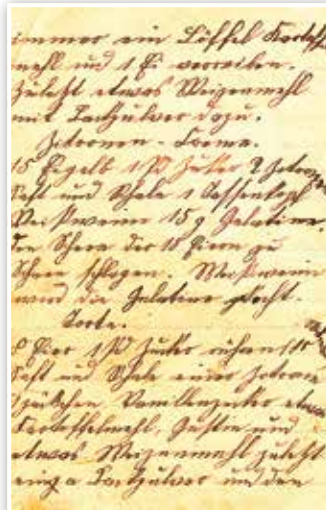 immer ein Löffel Kartoff
mehl und 1 Ei verreiben.
Zuletzt etwas Weizenmehl
mit Backpulver dazu.
Zitronen-Creme.
15 Eigelb 1 Pfd Zucker 2 Zitronen
Saft und Schale 1 Tassenkopf
Weißwein 15 g Gelatine.
Den Schnee der 15 Eiern zu
Schnee schlagen. Weißwein
wird die Gelatine
Torte.
8 Eier 1 Pfd Zucker rühren
Saft und Schale einer Zitrone
Vanillenzucker etwas
Kartoffelmehl, Gustin und
etwas Weizenmehl zuletzt
Backpulver und den